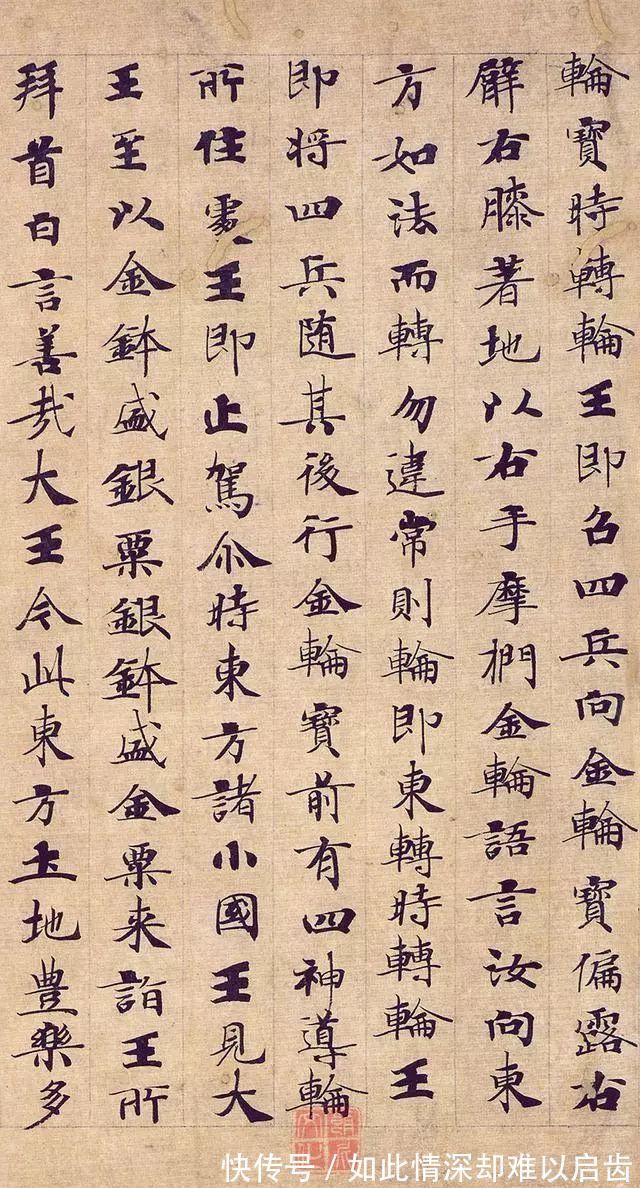 輪寶時轉輪王即召四兵向金輪寶偏露右
臂右膝著地以右手摩捫金輪語言汝向東
方如法而轉勿違常則輪即東轉時轉輪王
即將四兵随其後行金輪寶前有四神導輪
所住處王即止駕尒時東方諸小國王見大
王至以金鉢盛銀粟銀鉢盛金粟来詣王所
拜首白言善哉大王今此東方土地豊樂多
快传号 / 如此情深却难以启齿